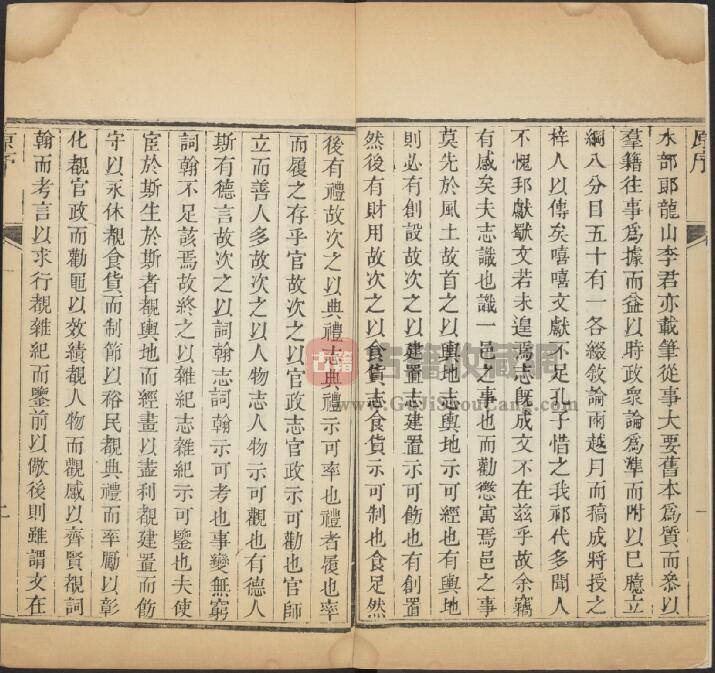 原序
水部郎龍山李君亦載筆從事大要舊本爲質而叅以
羣籍往事爲據而益以時政衆論爲凖而附以巳臆立
綱八分目五十有一各綴敘論兩越月而稿成將授之
梓人以傳矣嘻嘻文獻不足孔子惜之我祁代多聞人
不愧邦獻歇文若未遑焉志旣成文不在兹乎故余竊
有感矣夫志識也識一邑之事也而勸懲寓焉邑之事
莫先於風土故首之以輿地志輿地示可經也有輿地
則必有創設故次之以建置志建置示可飭也有創置
然後有財用故次之以食貨志食貨示可制也食足然
一
後有禮故次之以典禮志典禮示可率也禮者履也率
而履之存乎官故次之以官政志官政示可勸也官師
立而善人多故次之以人物志人物示可觀也有德人
斯有德言故次之以詞翰志詞翰示可考也事變無窮
詞翰不足該焉故終之以雜紀志雜紀示可鑒也夫使
宦於斯生於斯者觀輿地而經畫以盡利觀建置而飭
守以永休觀食貨而制節以裕民觀典禮而率勵以彰
化觀官政而勸黽以效績觀人物而觀感以齊賢觀詞
翰而考言以求行觀雜紀而鑒前以儆後則雖謂文在
原序
二
古籍
古籍收藏網
www.GuJiShouCang.com